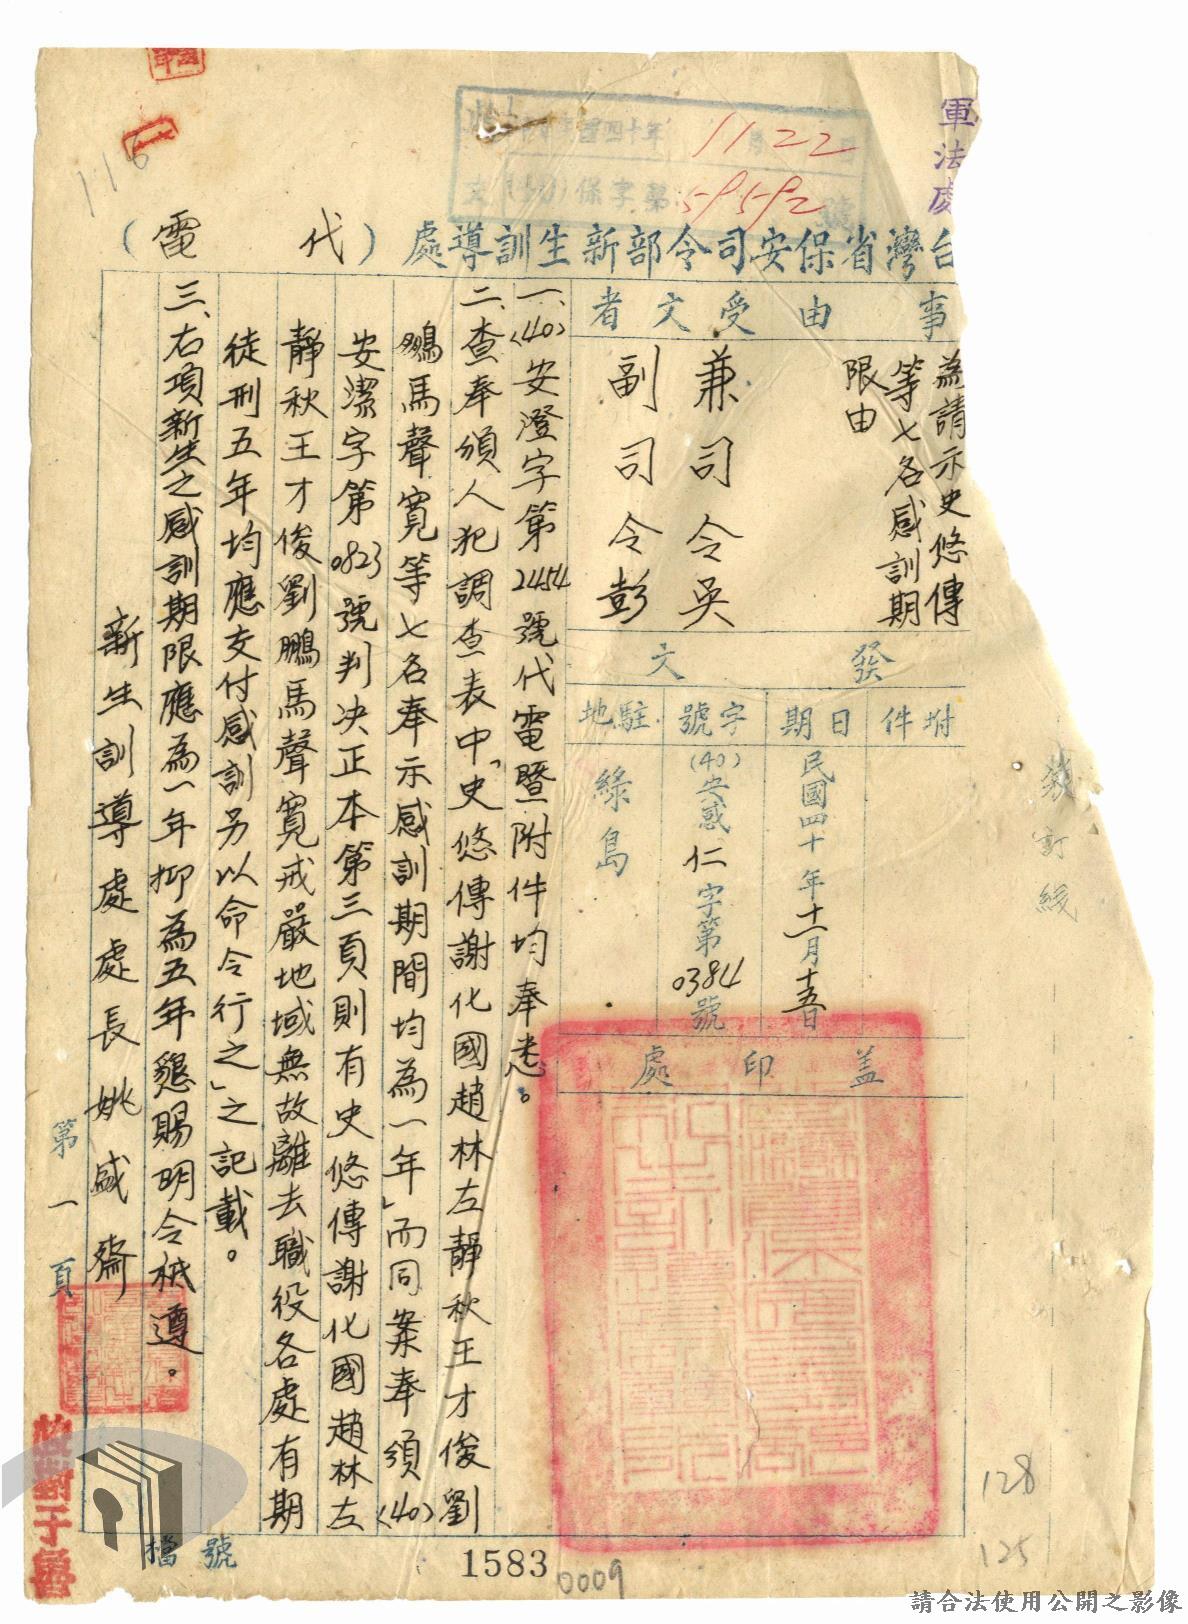 軍法處
民國四十年11月22日
文(40)保字第5952號
台灣省保安司令部新生訓導處(代電)
事由
為請示史悠傳
等七名感訓期
限由
受文者
兼司令吳
副司令彭
發文
附件
日期
民國四十年十一月十五日
字號
(40)安感仁字第0384號
駐地
綠島
蓋印處
一、(40)安澄字第2454號代電暨附件均奉悉。
二、查奉頒人犯調查表中「史悠傳謝化國趙林左靜秋王才俊劉
鵬馬聲寬等七名奉示感訓期間均為一年」而同案奉頒(40)
安潔字第0823號判決正本第三頁則有史悠傳謝化國趙林左
靜秋王才俊劉鵬馬聲寬戒嚴地域無故離去職役各處有期
徒刑五年均應交付感訓另以命令行之」之記載。
三、右項新生之感訓期限應為一年抑為五年懇賜明令祗遵。
新生訓導處處長姚盛齋
第一頁
裝訂綫
檔號
1583
0009
128
125
116
請合法使用公開之影像